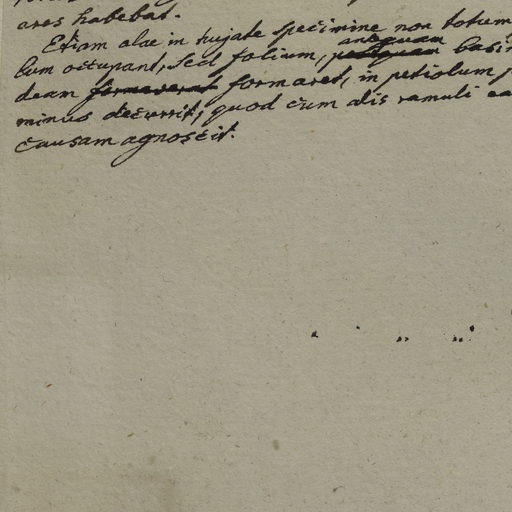 ares habebat.
Etiam alae in tujate specimine non totum
antequam
lum occupant, sed folium, postquam basin
deam formaverat formaret, in petiolum
minus decurrit, quod cum alis ramuli
causam agnoscit.